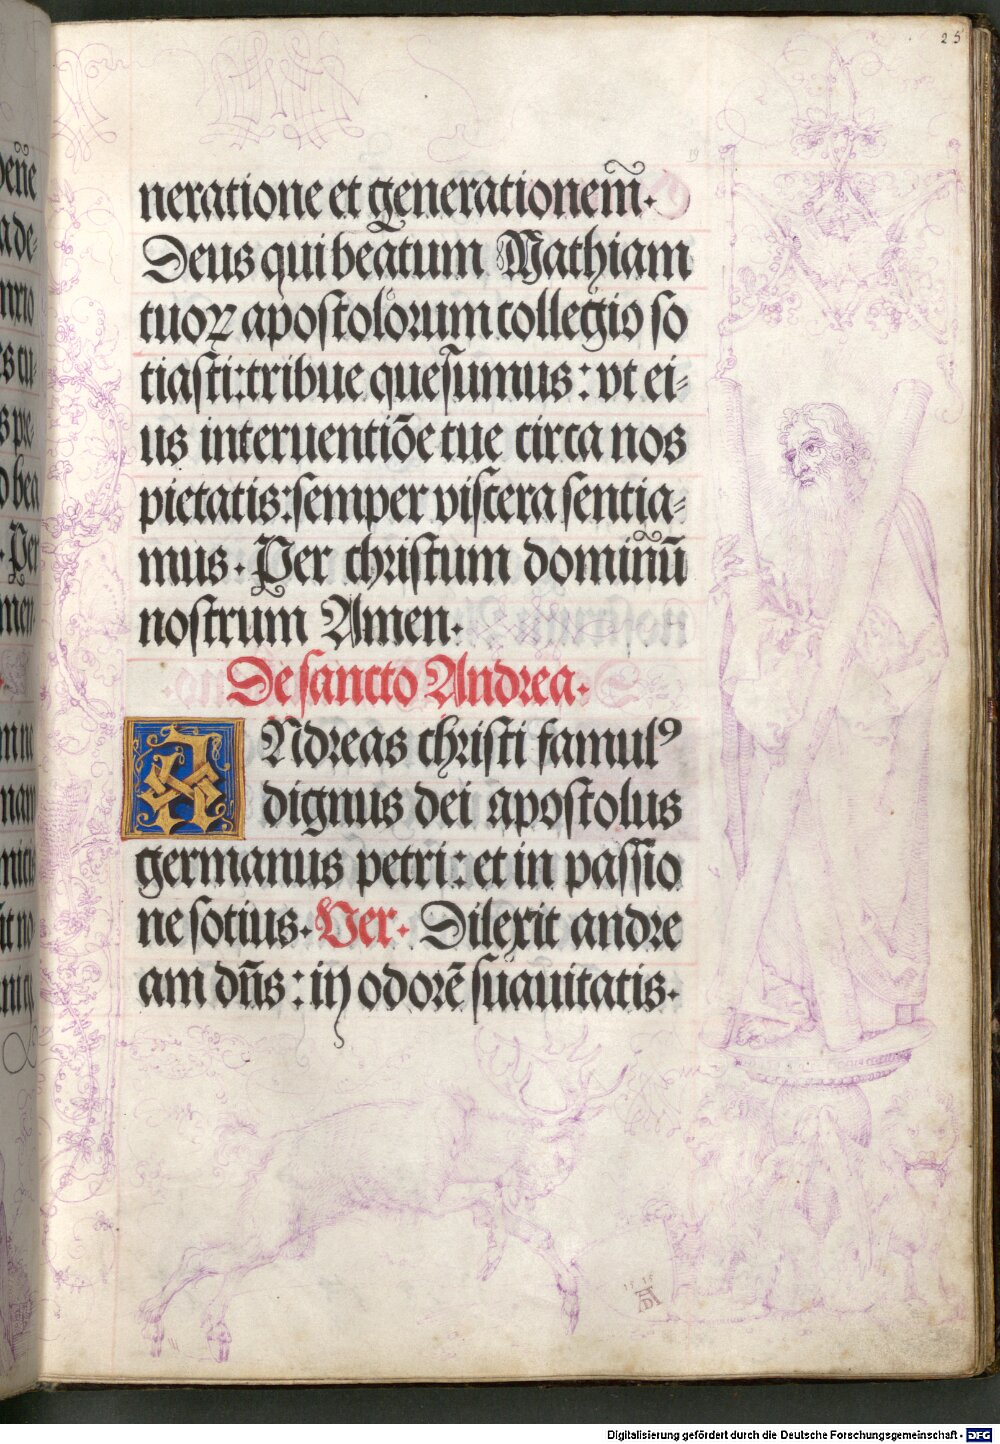 25
19
neratione et generationem̃.
Deus qui beatum Mathiam
tuoꝝ apostolorum collegio so
ciasti: tribue quesumus: vt ei-
us interuentiõe tue circa nos
pietatis: semper viscera sentia-
mus. Per christum dominũ
nostrum Amen.
De sancto Andrea.
ANdreas christi famulꝰ
dignus dei apostolus
germanus petri: et in passio
ne socius. Ver. Dilexit andre
am dñs: in odorẽ suauitatis.
1515
AD
Digitalisierung gefördert durch die Deutsche Forschungsgemeinschaft - DFG